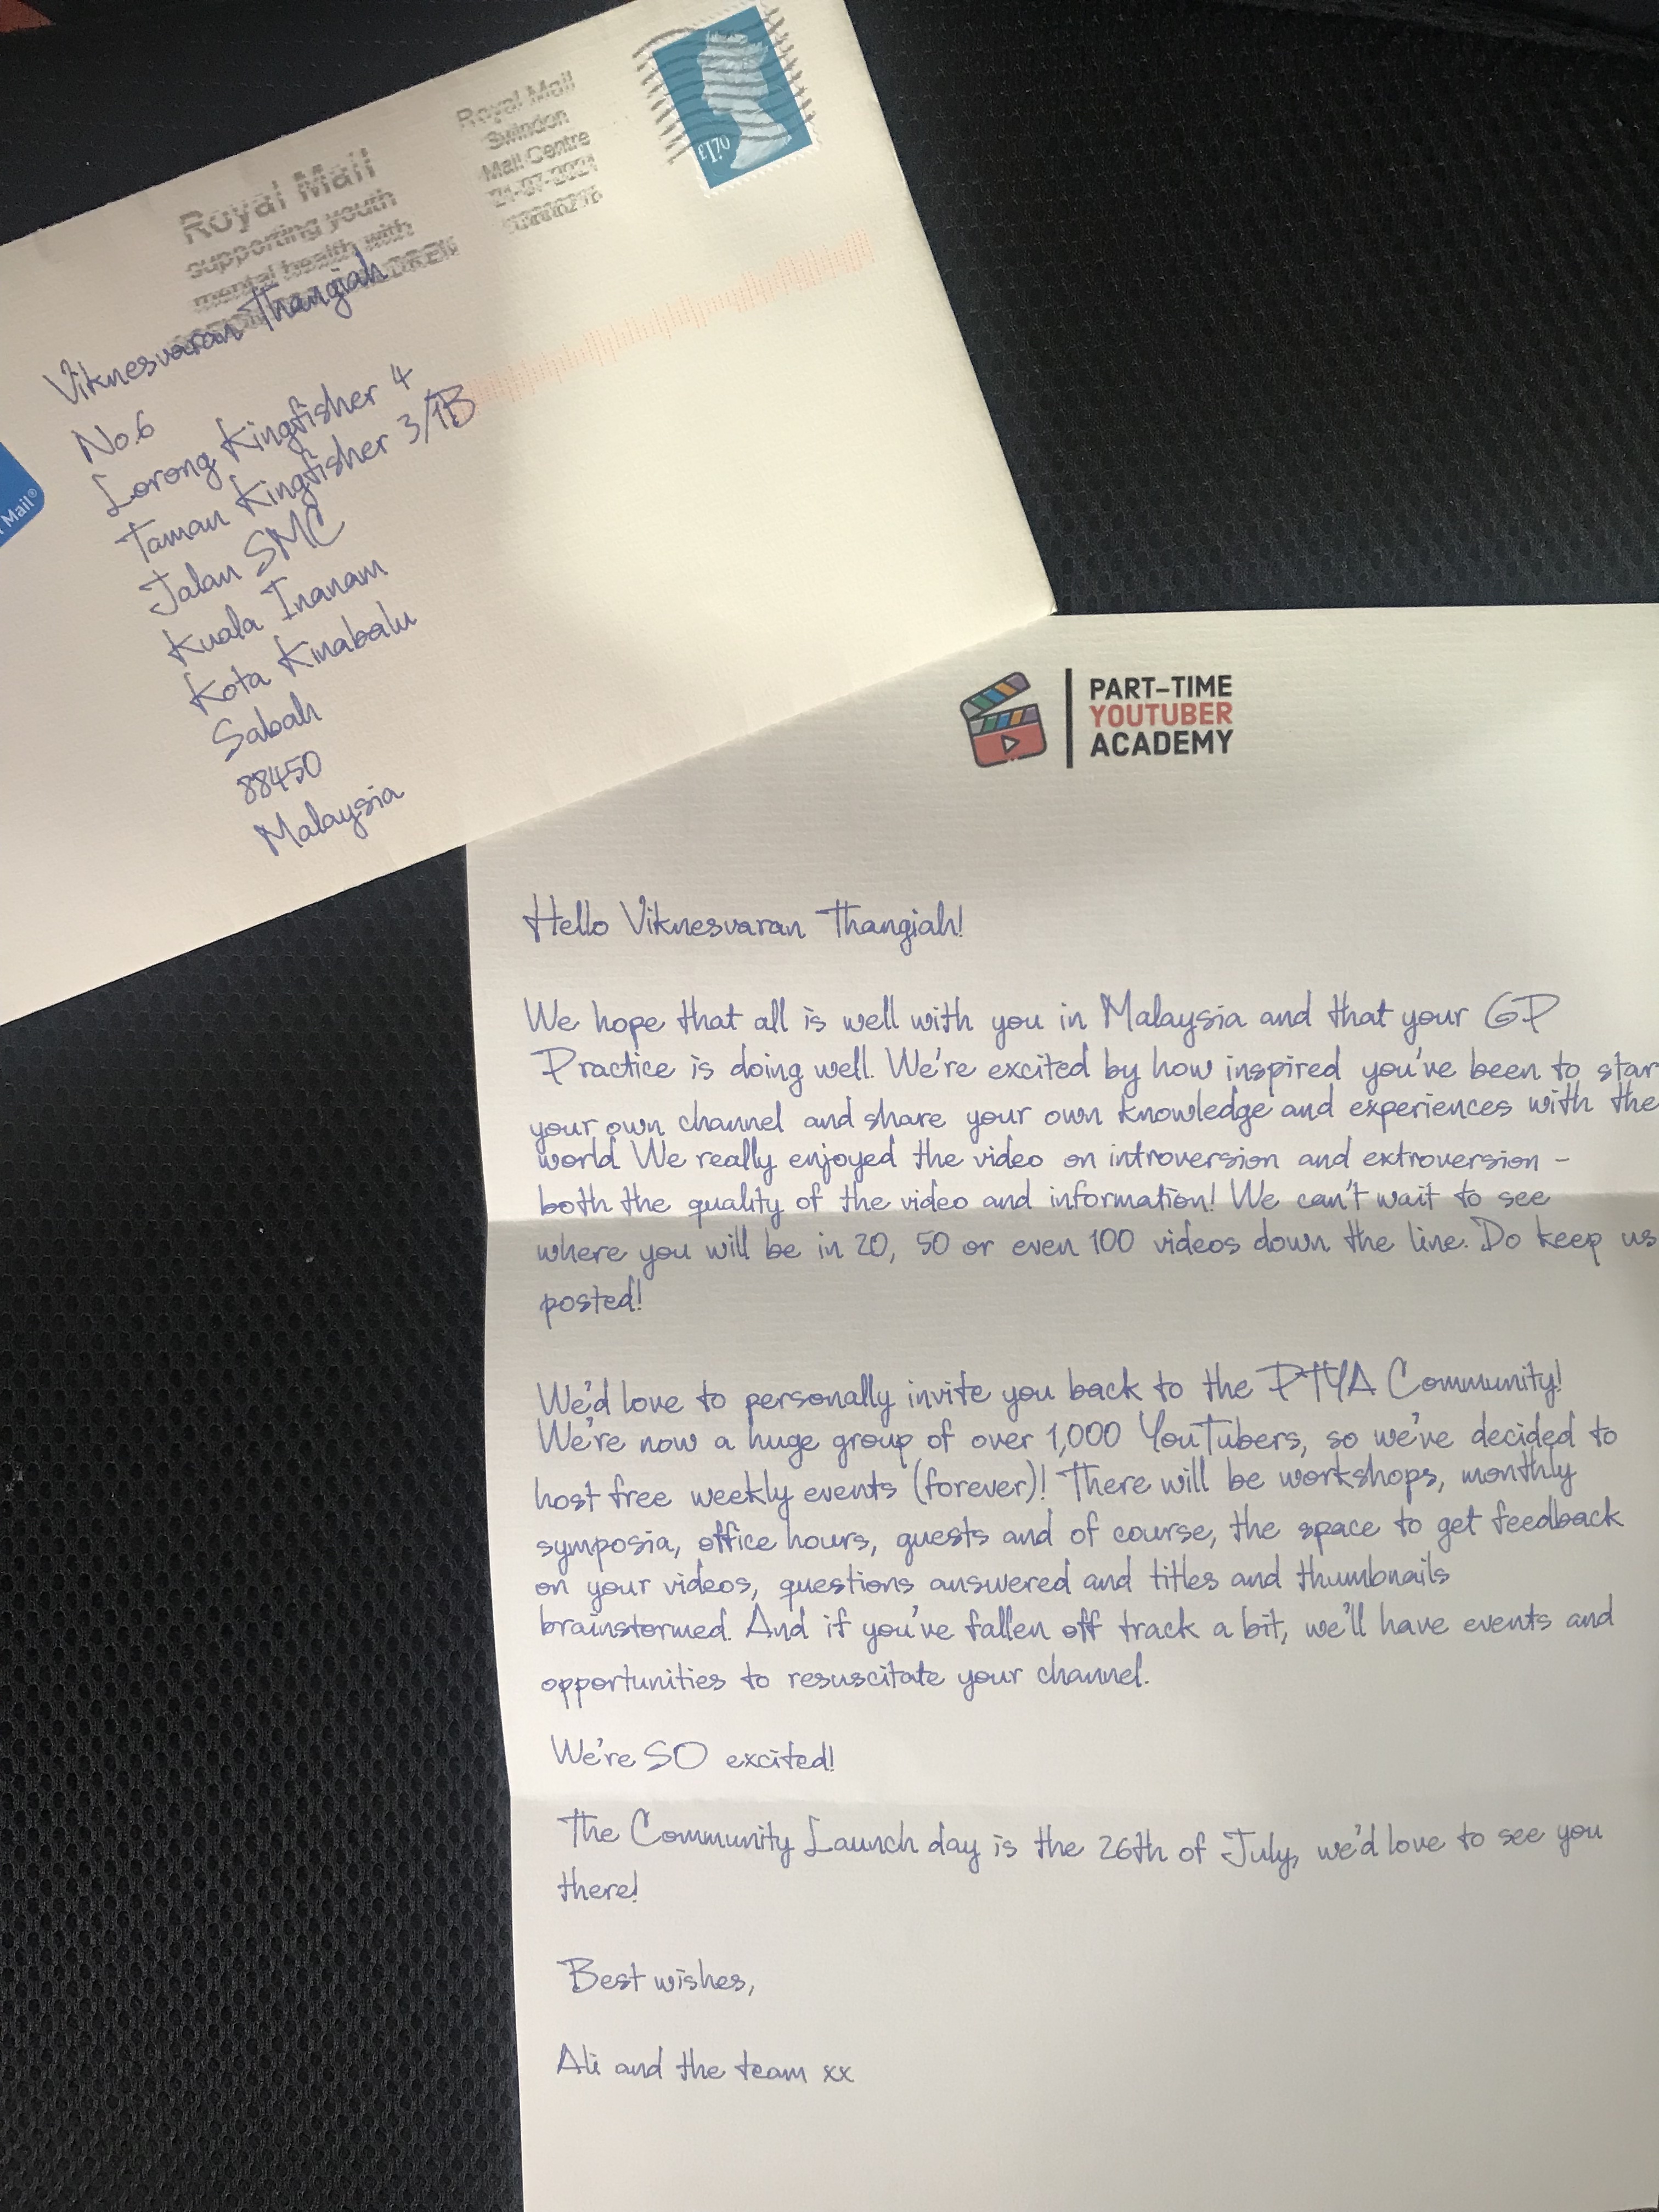 Royal Mail
supporting youth
mental health with
Royal Mail
Swindon
Mail Centre
21-07-2021
£1.70
Mail®
Viknesvaran Thangiah
No.6
Lorong Kingfisher 4
Taman Kingfisher 3/1B
Jalan SMC
Kuala Inanam
Kota Kinabalu
Sabah
88450
Malaysia
PART-TIME
YOUTUBER
ACADEMY
Hello Viknesvaran Thangiah!
We hope that all is well with you in Malaysia and that your GP
Practice is doing well. We're excited by how inspired you've been to star
your own channel and share your own knowledge and experiences with the
world. We really enjoyed the video on introversion and extroversion -
both the quality of the video and information! We can't wait to see
where you will be in 20, 50 or even 100 videos down the line. Do keep us
posted!
We'd love to personally invite you back to the PTYA Community!
We're now a huge group of over 1,000 YouTubers, so we've decided to
host free weekly events (forever)! There will be workshops, monthly
symposia, office hours, guests and of course, the space to get feedback
on your videos, questions answered and titles and thumbnails
brainstormed. And if you've fallen off track a bit, we'll have events and
opportunities to resuscitate your channel.
We're SO excited!
The Community Launch day is the 26th of July, we'd love to see you
there!
Best wishes,
Ali and the team xx